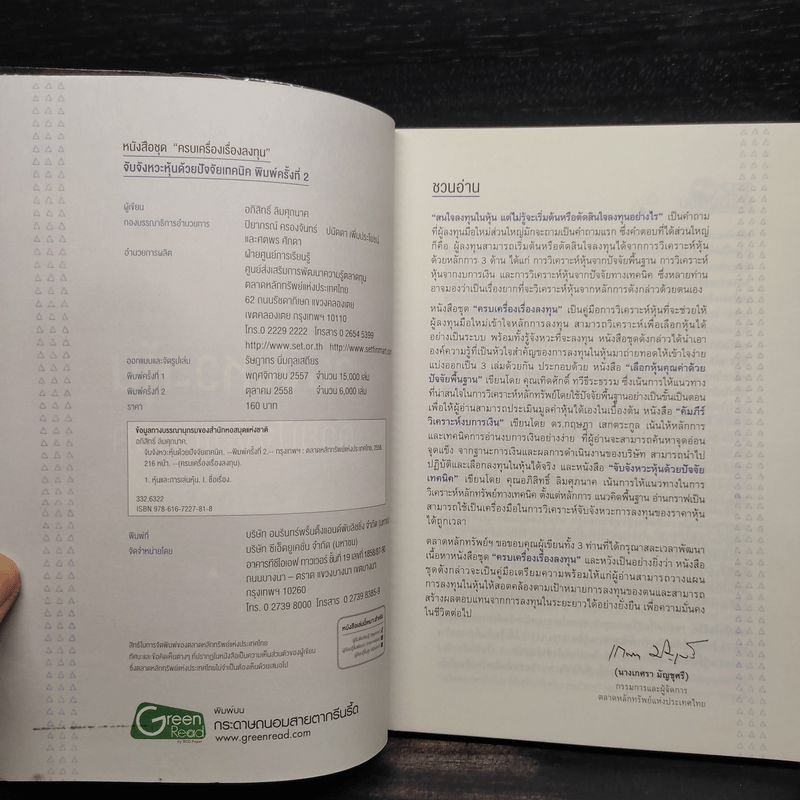 หนังสือชุด "ครบเครื่องเรื่องลงทุน"
จับจังหวะหุ้นด้วยปัจจัยเทคนิค พิมพ์ครั้งที่ 2
ผู้เขียน อภิสิทธิ์ ลิมศุภนาค
กองบรรณาธิการอำนวยการ ปิยาภรณ์ ครองจันทร์ ปนัดดา เพิ่มประโยชน์
และศตพร ศักดา
อำนวยการผลิต ฝ่ายศูนย์การเรียนรู้
ศูนย์ส่งเสริมการพัฒนาความรู้ตลาดทุน
ตลาดหลักทรัพย์แห่งประเทศไทย
62 ถนนรัชดาภิเษก แขวงคลองเตย
เขตคลองเตย กรุงเทพฯ 10110
โทร.0 2229 2222 โทรสาร 0 2654 5399
http://www.set.or.th http://www.settfinsmart.com
ออกแบบและจัดรูปเล่ม รัษฎากร นิ่มกุลเสถียร
พิมพ์ครั้งที่ 1 พฤศจิกายน 2557 จำนวน 15,000 เล่ม
พิมพ์ครั้งที่ 2 ตุลาคม 2558 จำนวน 6,000 เล่ม
ราคา 160 บาท
ข้อมูลทางบรรณานุกรมของสำนักหอสมุดแห่งชาติ
อภิสิทธิ์ ลิมศุภนาค.
จับจังหวะหุ้นด้วยปัจจัยเทคนิค. --พิมพ์ครั้งที่ 2.-- กรุงเทพฯ : ตลาดหลักทรัพย์แห่งประเทศไทย, 2558.
216 หน้า. --(ครบเครื่องเรื่องลงทุน).
1. หุ้นและการเล่นหุ้น. I. ชื่อเรื่อง.
332.6322
ISBN 978-616-7227-81-8
พิมพ์ที่ บริษัท อมรินทร์พริ้นติ้งแอนด์พับลิชชิ่ง จำกัด
จัดจำหน่ายโดย บริษัท ซีเอ็ดยูเคชั่น จำกัด (มหาชน)
อาคารทีซีไอเอฟ ทาวเวอร์ ชั้นที่ 19 เลขที่ 1858/87-90
ถนนบางนา – ตราด แขวงบางนา เขตบางนา
กรุงเทพฯ 10260
โทร. 0 2739 8000 โทรสาร 0 2739 8385-9
หนังสือเล่มนี้เหมาะสำหรับ
สิทธิในการจัดพิมพ์ของตลาดหลักทรัพย์แห่งประเทศไทย
ทัศนะและข้อคิดเห็นต่างๆ ที่ปรากฏในหนังสือเป็นความเห็นส่วนตัวของผู้เขียน
ซึ่งตลาดหลักทรัพย์แห่งประเทศไทยไม่จำเป็นต้องเห็นด้วยเสมอไป
Green Read
by SCG Paper
พิมพ์บน
กระดาษถนอมสายตากรีนรี้ด
www.greenread.com
ชวนอ่าน
"สนใจลงทุนในหุ้น แต่ไม่รู้จะเริ่มต้นหรือตัดสินใจลงทุนอย่างไร" เป็นคำถาม
ที่ผู้ลงทุนมือใหม่ส่วนใหญ่มักจะถามเป็นคำถามแรก ซึ่งคำตอบที่ได้ส่วนใหญ่
ก็คือ ผู้ลงทุนสามารถเริ่มต้นหรือตัดสินใจลงทุนได้จากการวิเคราะห์หุ้น
ด้วยหลักการ 3 ด้าน ได้แก่ การวิเคราะห์หุ้นจากปัจจัยพื้นฐาน การวิเคราะห์
หุ้นจากงบการเงิน และการวิเคราะห์หุ้นจากปัจจัยทางเทคนิค ซึ่งหลายท่าน
อาจมองว่าเป็นเรื่องยากที่จะวิเคราะห์หุ้นจากหลักการดังกล่าวด้วยตนเอง
หนังสือชุด "ครบเครื่องเรื่องลงทุน" เป็นคู่มือการวิเคราะห์หุ้นที่จะช่วยให้
ผู้ลงทุนมือใหม่เข้าใจหลักการลงทุน สามารถวิเคราะห์เพื่อเลือกหุ้นได้
อย่างเป็นระบบ พร้อมทั้งรู้จังหวะที่จะลงทุน หนังสือชุดดังกล่าวได้นำเอา
องค์ความรู้ที่เป็นหัวใจสำคัญของการลงทุนในหุ้นมาถ่ายทอดให้เข้าใจง่าย
แบ่งออกเป็น 3 เล่มด้วยกัน ประกอบด้วย หนังสือ "เลือกหุ้นคุณค่าด้วย
ปัจจัยพื้นฐาน" เขียนโดย คุณเทิดศักดิ์ ทวีธีระธรรม ซึ่งเน้นการให้แนวทาง
ที่น่าสนใจในการวิเคราะห์หลักทรัพย์โดยใช้ปัจจัยพื้นฐานอย่างเป็นขั้นเป็นตอน
เพื่อให้ผู้อ่านสามารถประเมินมูลค่าหุ้นได้เองในเบื้องต้น หนังสือ "คัมภีร์
วิเคราะห์งบการเงิน" เขียนโดย ดร.กฤษฎา เสกตระกูล เน้นให้หลักการ
และเทคนิคการอ่านงบการเงินอย่างง่าย ที่ผู้อ่านจะสามารถค้นหาจุดอ่อน
จุดแข็ง จากฐานะการเงินและผลการดำเนินงานของบริษัท สามารถนำไป
ปฏิบัติและเลือกลงทุนในหุ้นได้จริง และหนังสือ "จับจังหวะหุ้นด้วยปัจจัย
เทคนิค" เขียนโดย คุณอภิสิทธิ์ ลิมศุภนาค เน้นการให้แนวทางในการ
วิเคราะห์หลักทรัพย์ทางเทคนิค ตั้งแต่หลักการ แนวคิดพื้นฐาน อ่านกราฟเป็น
สามารถใช้เป็นเครื่องมือในการวิเคราะห์จับจังหวะการลงทุนของราคาหุ้น
ได้ถูกเวลา
ตลาดหลักทรัพย์ฯ ขอขอบคุณผู้เขียนทั้ง 3 ท่านที่ได้กรุณาสละเวลาพัฒนา
เนื้อหาหนังสือชุด "ครบเครื่องเรื่องลงทุน" และหวังเป็นอย่างยิ่งว่า หนังสือ
ชุดดังกล่าวจะเป็นคู่มือเตรียมความพร้อมให้แก่ผู้อ่านสามารถวางแผน
การลงทุนในหุ้นให้สอดคล้องตามเป้าหมายการลงทุนของตนและสามารถ
สร้างผลตอบแทนจากการลงทุนในระยะยาวได้อย่างยั่งยืน เพื่อความมั่นคง
ในชีวิตต่อไป
(นางเกศรา มัญชุศรี)
กรรมการและผู้จัดการ
ตลาดหลักทรัพย์แห่งประเทศไทย